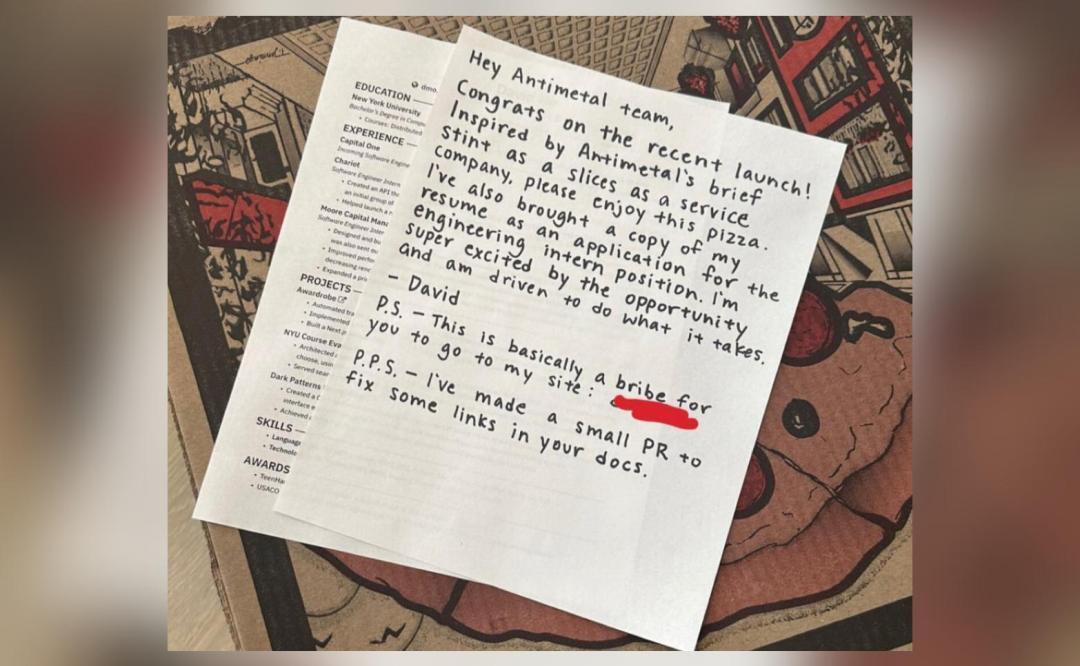 Hey Antimetal team,
Congrats on the recent launch!
Inspired by Antimetal's brief
stint as a slices as a service
company, please enjoy this pizza.
I've also brought a copy of my
resume as an application for the
engineering intern position. I'm
super excited by the opportunity
and am driven to do what it takes.
- David
P.S. - This is basically a bribe for
you to go to my site:
P.P.S. - I've made a small PR to
fix some links in your docs.
dmo
EDUCATION
New York University
Bachelor's Degree in Compu
• Courses: Distributed
EXPERIENCE
Capital One
Incoming Software Engine
Chariot
Software Engineer Intern
• Created an API th
an initial group of
• Helped launch a r
Moore Capital Mana
Software Engineer Inter
• Designed and bu
was also sent ou
• Improved perfo
decreasing rend
• Expanded a pri
PROJECTS
Awardrobe
• Automated tra
• Implemented
• Built a Next.p
NYU Course Eva
• Architected
choose, usin
• Served sear
Dark Patterns
• Created a C
interface e
• Achieved
SKILLS
• Languag
• Technolo
AWARDS
• TeenHa
• USACO